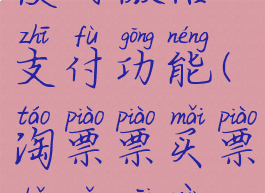 zhī fù gōng néng
支付功能(
táo piào piào mǎi piào
淘票票买票